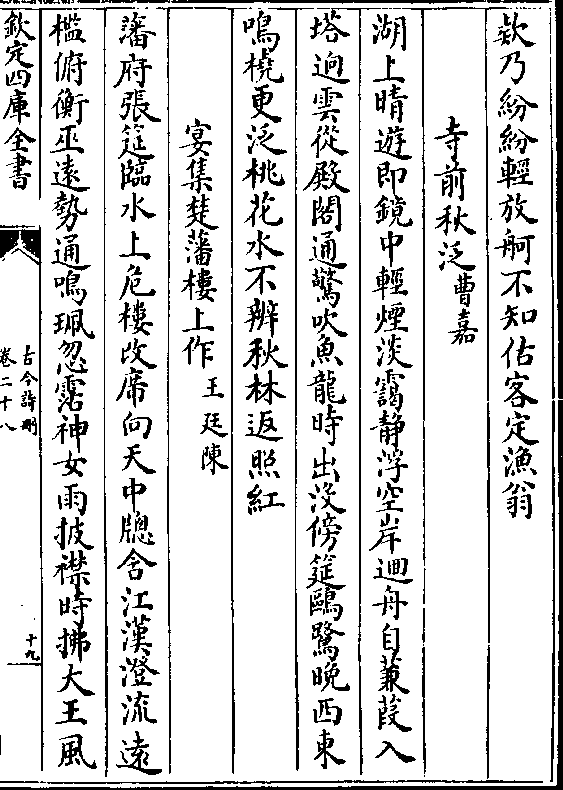 欸乃紛紛輕放舸不知估客定漁翁
寺前秋泛 曹嘉
湖上晴遊即鏡中輕煙淡靄静浮空岸逥舟自蒹葭入
塔逈雲從殿閣通驚吹魚龍時出沒傍筵鷗鷺晚西東
鳴橈更泛桃花水不辨秋林返照紅
宴集楚藩樓上作 王廷陳
藩府張筵臨水上危樓改席向天中牕含江漢澄流遠
檻俯衡巫遠勢通鳴珮忽霑神女雨披襟時拂大王風
欽定四庫全書
古今詩刪
卷二十八
十九